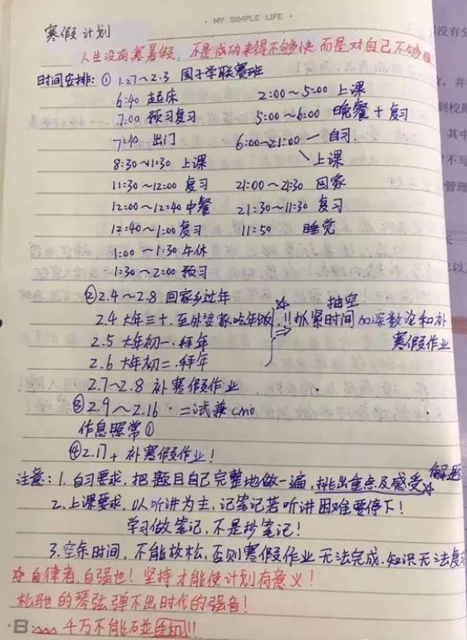 · MY SIMPLE LIFE ·
寒假计划
人生没有寒暑假，不是成功来得不够快，而是对自己不够狠
时间安排：① 1.27~2.3 国子学联赛班
6:40 起床 2:00~5:00 上课
7:00 预习复习 5:00~6:00 晚餐+复习
7:40 出门 6:00~21:00 — 自习
8:30~11:30 上课 上课
11:30~12:00 复习 21:00~21:30 回家
12:00~12:40 中餐 21:30~11:30 复习
12:40~1:00 复习 11:50 睡觉
1:00~1:30 午休
1:30~2:00 预习
② 2.4~2.8 回家乡过年 ☆ 抽空
2.4 大年三十，至外婆家吃年饭 !! 抓紧时间加深数论和补
2.5 大年初一，拜年 寒假作业
2.6 大年初二，拜年
2.7~2.8 补寒假作业
③ 2.9~2.16 二试兼cmo
作息照常①
④ 2.17+ 补寒假作业！
注意：1. 自习要求，把题目自己完整地做一遍，挑出重点及感受☆ 解题
2. 上课要求，以听讲为主，记笔记若听讲困难要停下！
学习做笔记，不是抄笔记！
3. 空余时间，不能放松，否则寒假作业无法完成，知识无法复习
☆自律者，自强也！坚持才能使计划有意义！
松驰的琴弦弹不出时代的强音！
千万不能碰手机!!